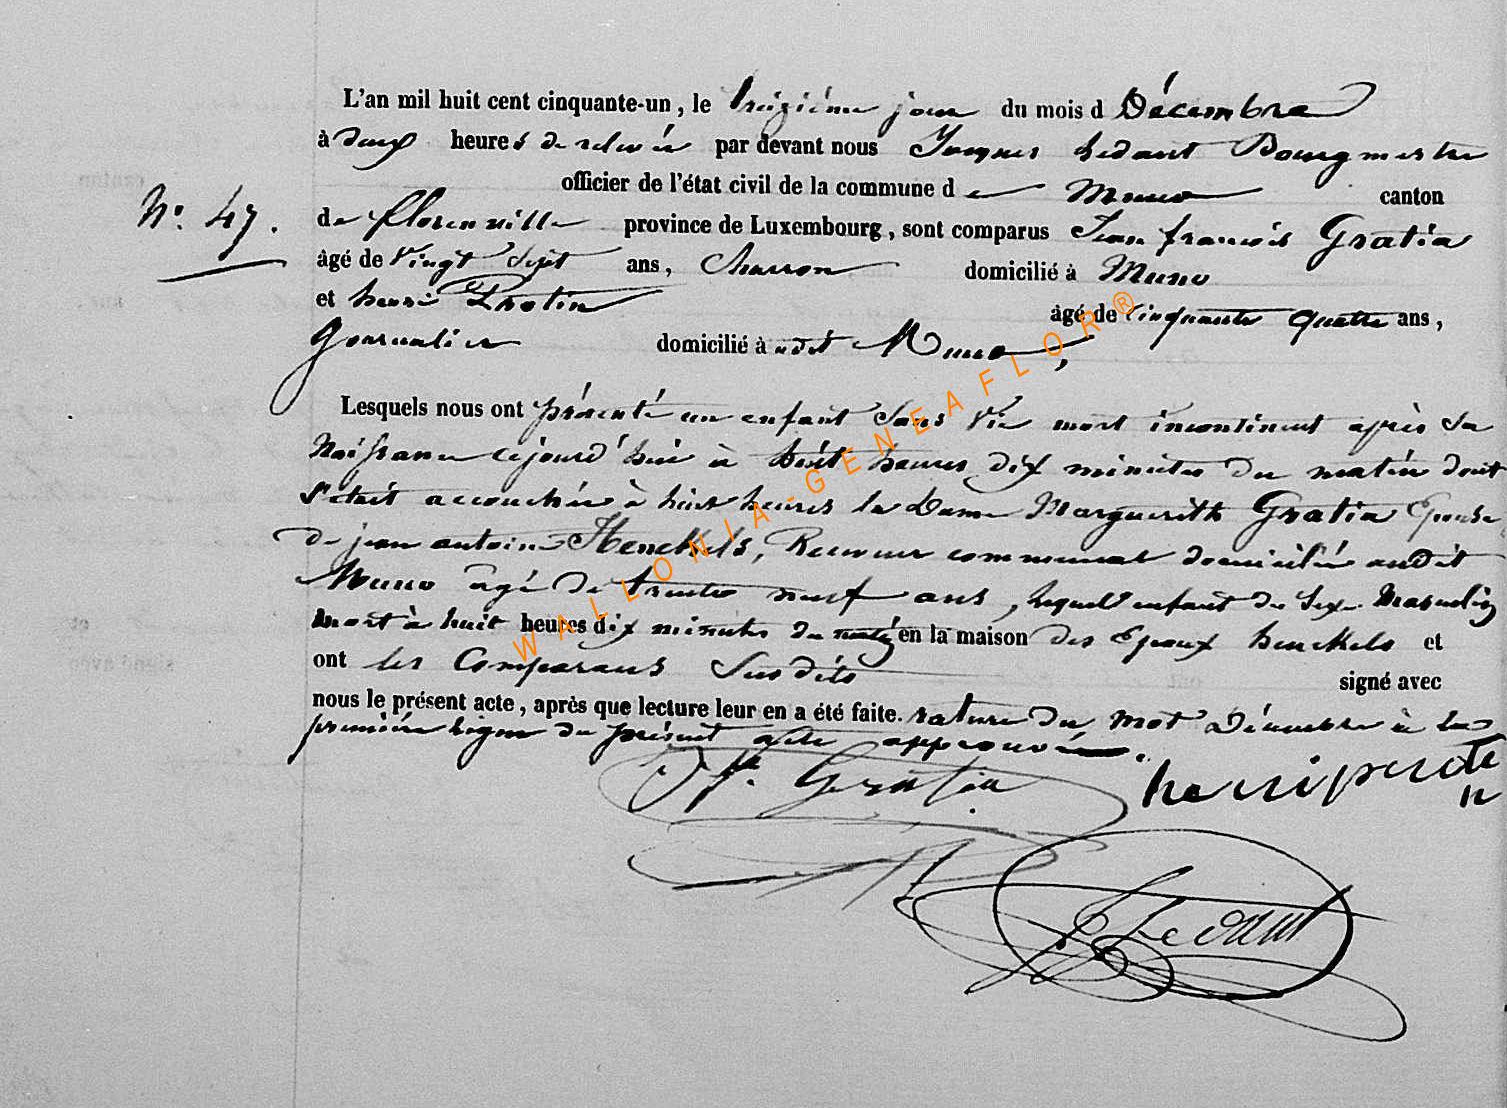 L'an mil huit cent cinquante-un, le treizième jour du mois d Décembre
à deux heures de relevée par devant nous Jacques Ledant Bourgmestre
officier de l'état civil de la commune de Muno canton
N°. 47.
de florenville province de Luxembourg, sont comparus Jean françois Gratia
âgé de Vingt Sept ans, Charron domicilié à Muno
et henri Protin âgé de Cinquante quatre ans,
Journalier domicilié à udit Muno,
Lesquels nous ont présenté un enfant Sans Vie mort incontinent après Sa
Naissance cejourd'hui à huit heures dix minutes du matin dont
S'etait accouchée à huit heures la Dame Marguerith Gratia Epouse
de jean antoine Henckels, Receveur communal domicilié audit
Muno âgé de trente neuf ans, lequel enfant du Sexe Masculin
mort à huit heures dix minutes du matin en la maison des Epoux henckels et
ont les Comparans Susdits signé avec
nous le présent acte, après que lecture leur en a été faite. rature du mot Décembre à la
première ligne du présent acte approuvée.
Jf. Gratia henri proti
n
J Ledant
WALLONIA-GENEAFLOR®